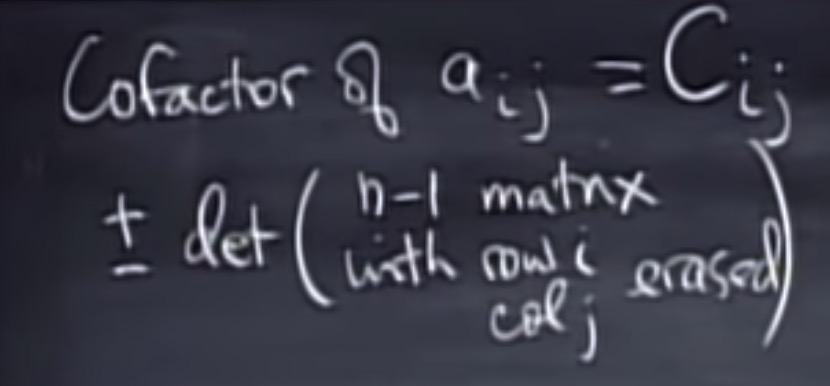 Cofactor of a_{ij} = C_{ij}
± det ( n-1 matrix
with row i erased )
col j